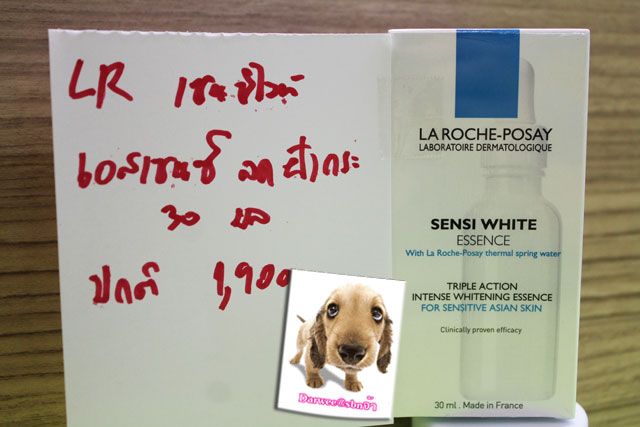 LR เซนซิไวท์
เอสเซนซ์ ลด ฝ้า กระ
30 มล
ปกติ 1,900
Darwee@sbnจ้า
LA ROCHE-POSAY
LABORATOIRE DERMATOLOGIQUE
SENSI WHITE
ESSENCE
With La Roche-Posay thermal spring water
TRIPLE ACTION
INTENSE WHITENING ESSENCE
FOR SENSITIVE ASIAN SKIN
Clinically proven efficacy
30 ml . Made in France